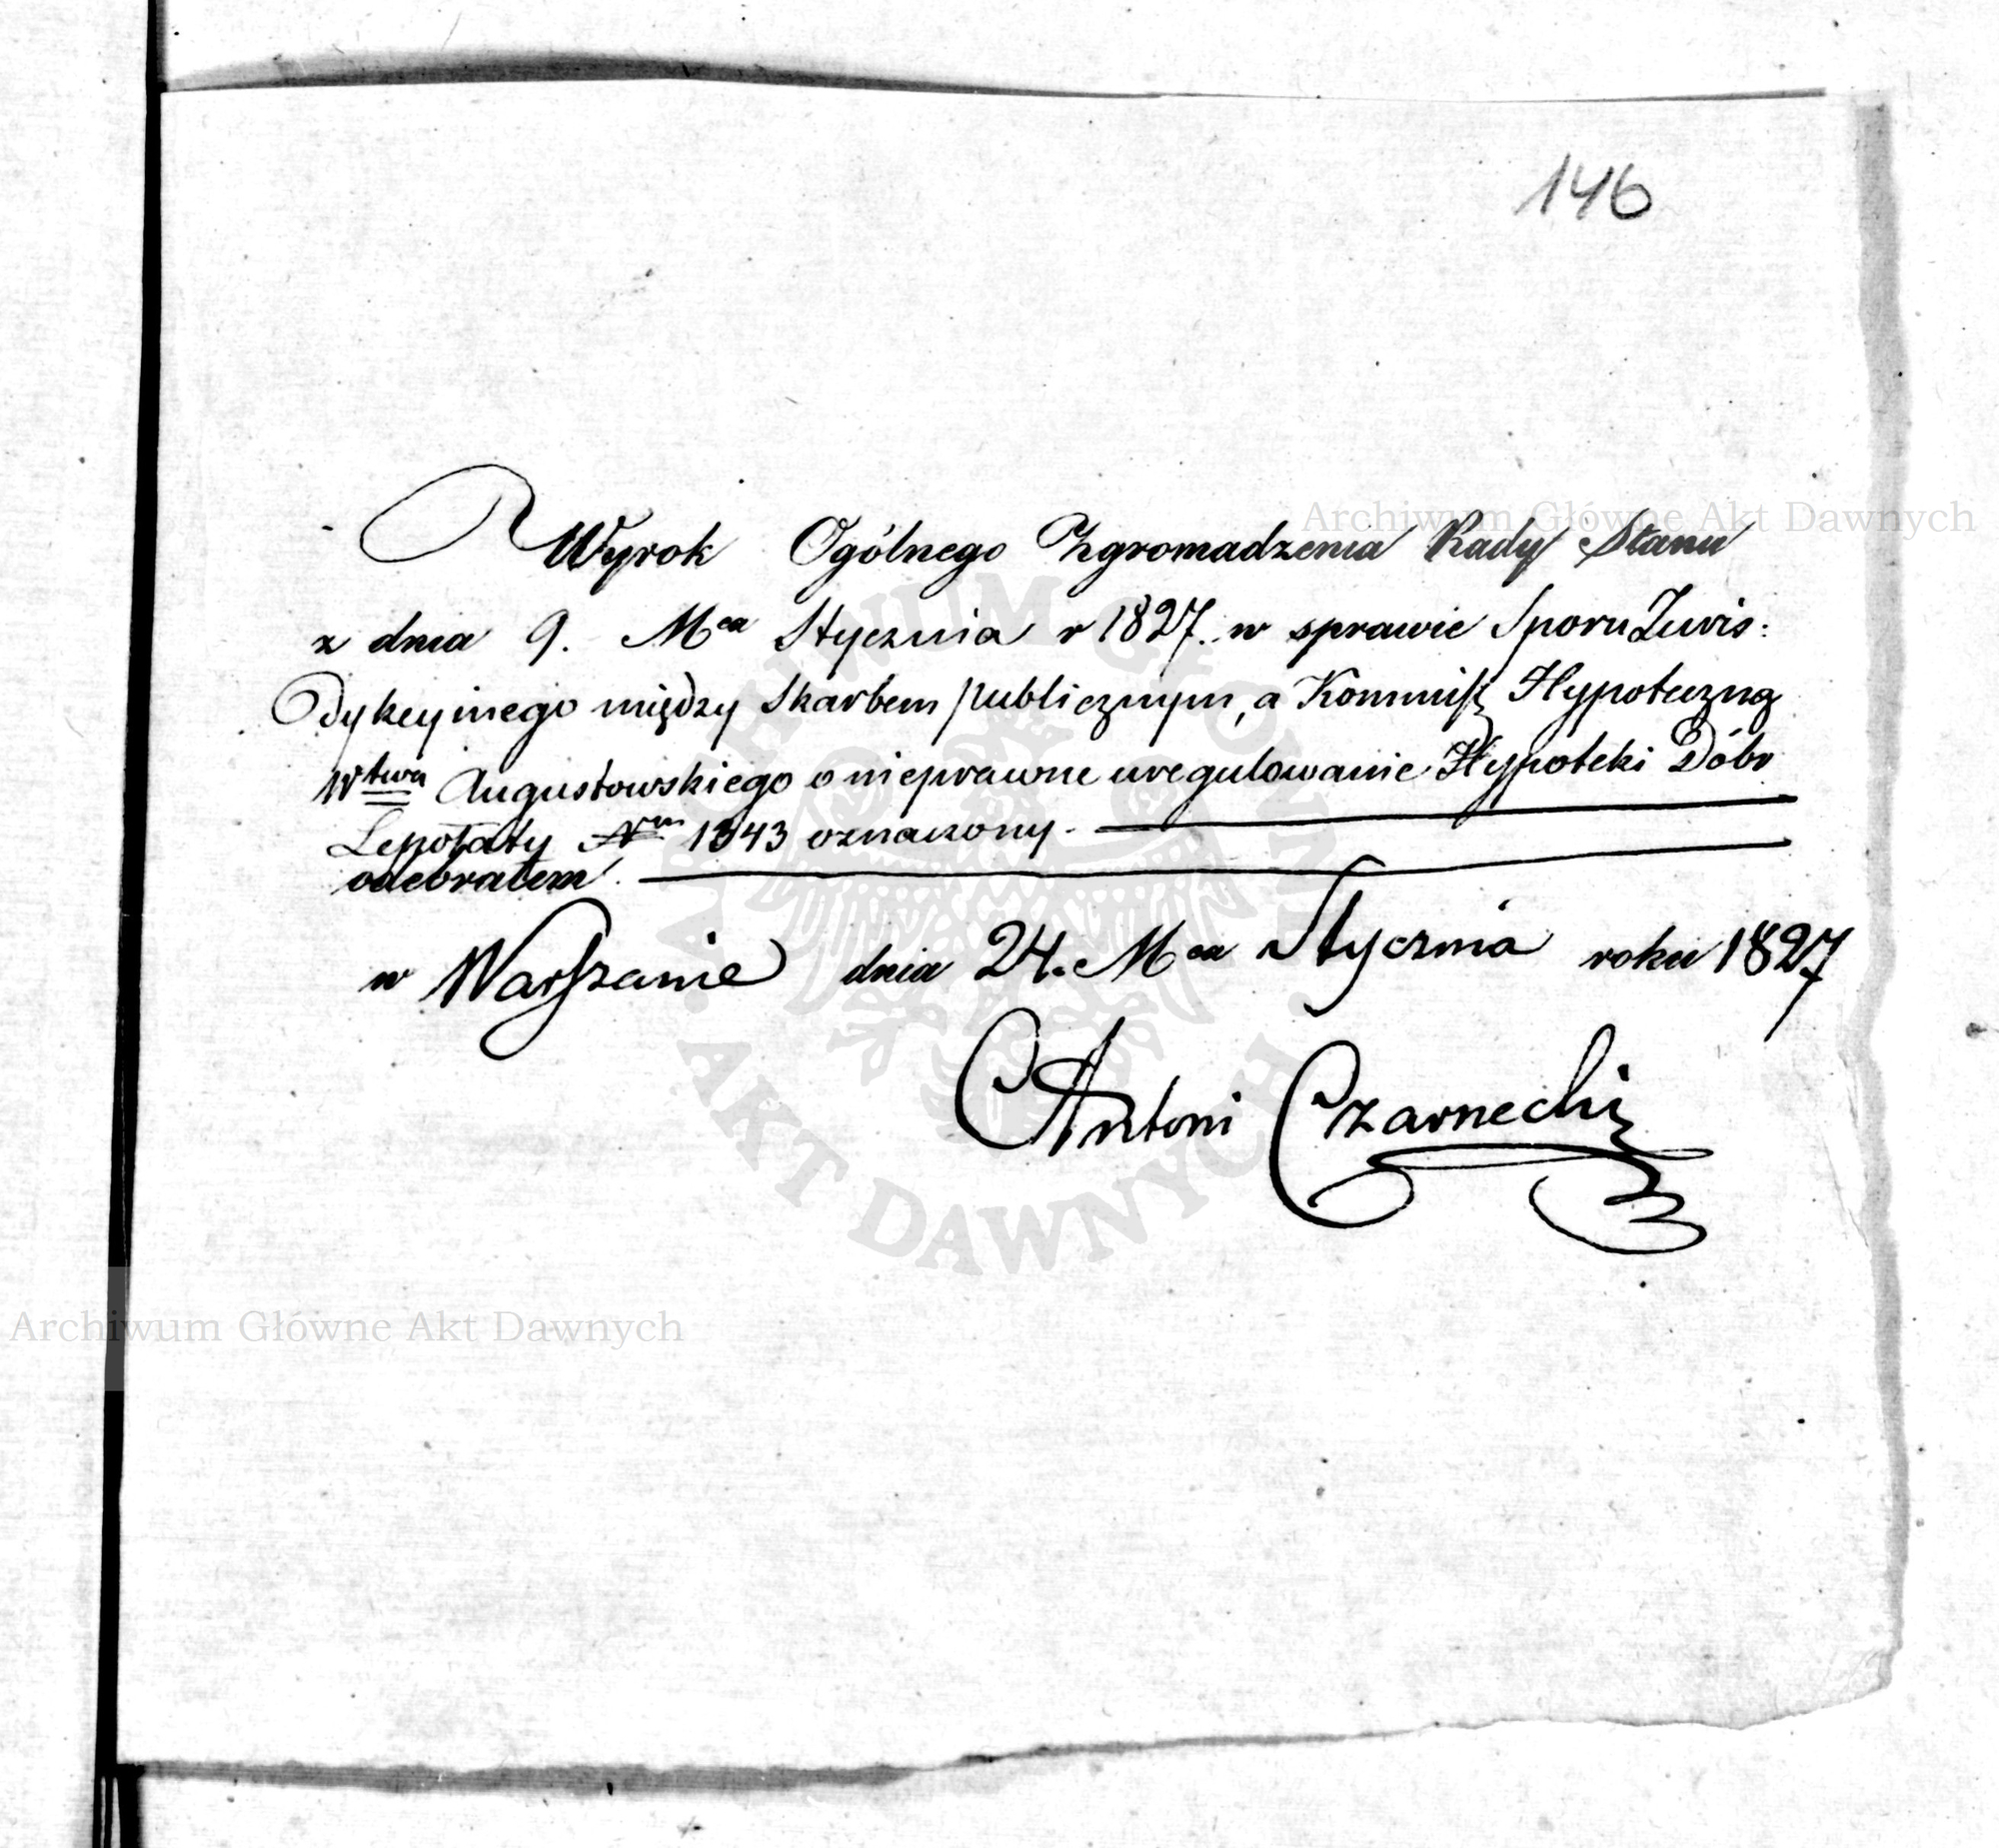 146
Wyrok Ogólnego Zgromadzenia Rady Stanu
z dnia 9. Mca Stycznia r 1827. w sprawie Sporu Juris:
dykcyinego między Skarbem publicznym, a Kommissą Hypoteczną
Wtwa Augustowskiego o nieprawne uregulowanie Hypoteki Dóbr
Nrm 1343 oznaczony.
odebrałem.
w Warszawie dnia 24. Mca Stycznia roku 1827
Antoni Czarnecki
Archiwum Główne Akt Dawnych
Archiwum Główne Akt Dawnych
ARCHIWUM GŁÓWNE AKT DAWNYCH